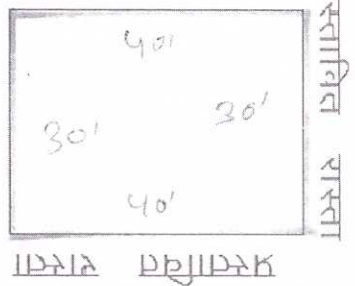 40'
30'
30'
40'
स्तावित रास्ता
प्रस्तावित रास्ता